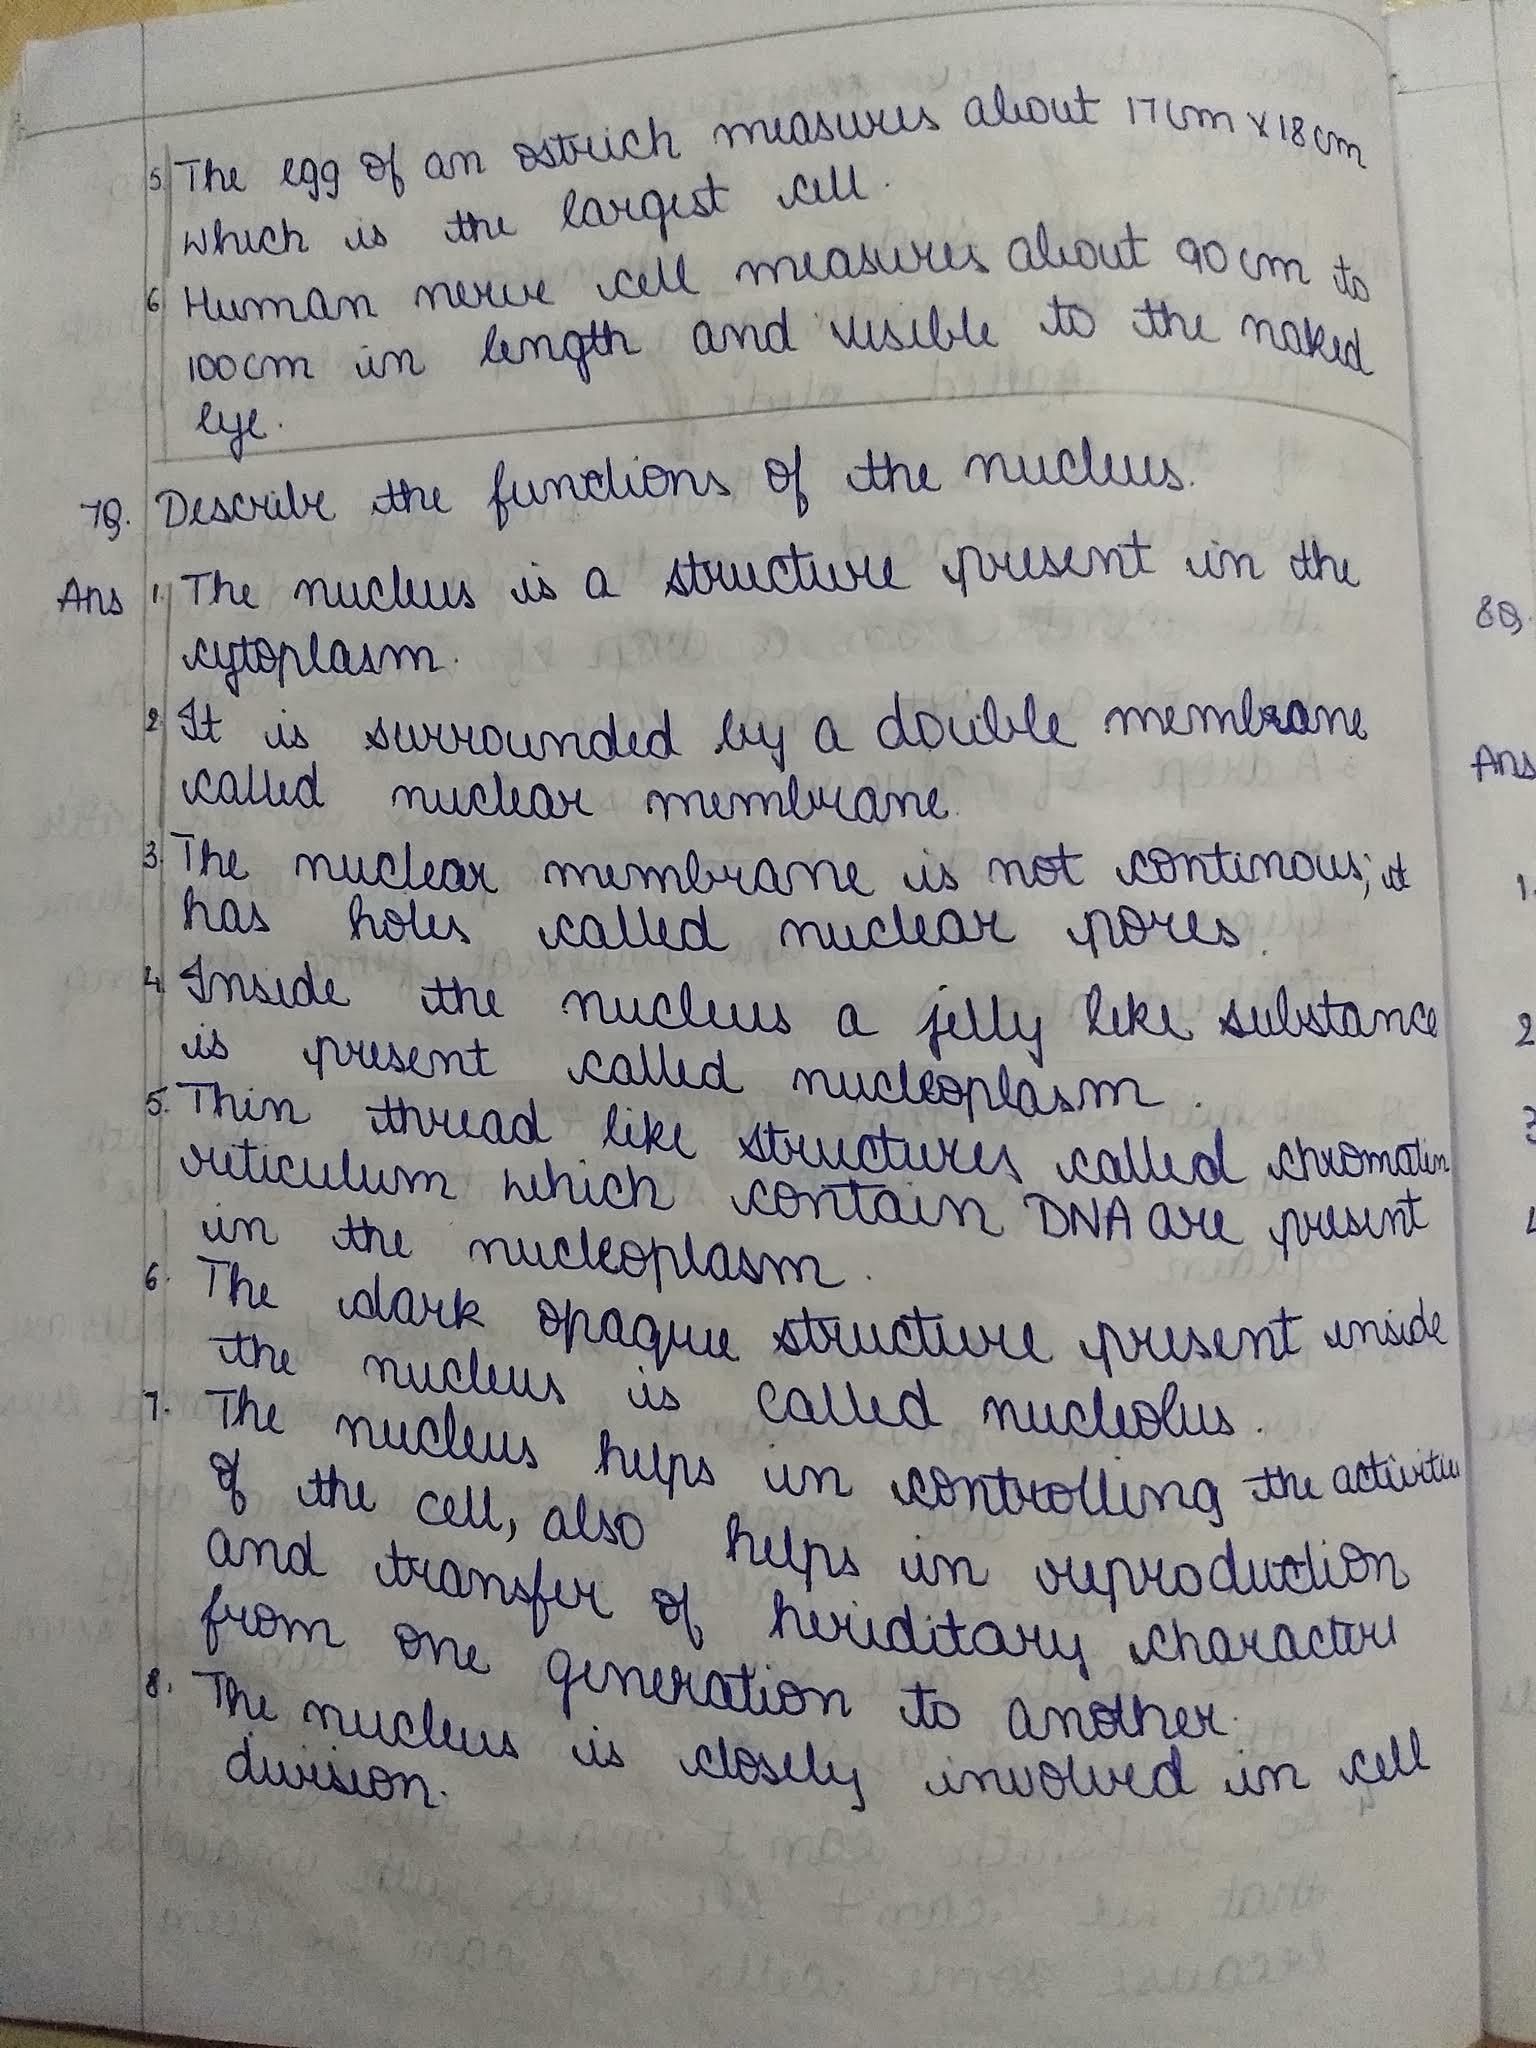 5. The egg of an ostrich measures about 17cm x 18cm
which is the largest cell.
6 Human nerve cell measures about 90cm to
100cm in length and visible to the naked
eye.
7Q. Describe the functions of the nucleus.
Ans 1. The nucleus is a structure present in the
cytoplasm.
2. It is surrounded by a double membrane
called nuclear membrane.
3. The nuclear membrane is not continous; it
has holes called nuclear pores.
4. Inside the nucleus a jelly like substance
is present called nucleoplasm.
5. Thin thread like structures called chromatin
reticulum which contain DNA are present
in the nucleoplasm.
6. The dark opaque structure present inside
the nucleus is called nucleolus.
7. The nucleus helps in controlling the activities
of the cell, also helps in reproduction
and transfer of heriditary characters
from one generation to another.
8. The nucleus is closely involved in cell
division.
8Q.
Ans
1.
2
3